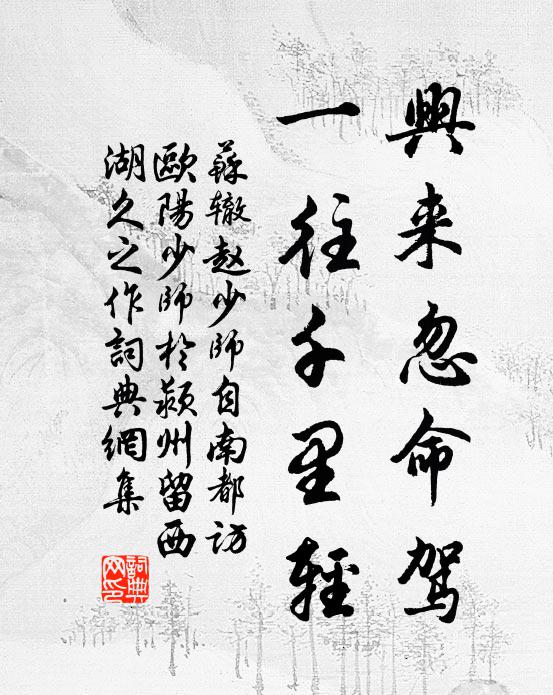 興来忽命驾
一往千里輕
蘇辙赵少师自南都访
歐陽少师於颍州留西
湖久之作詞典網集
詞典网印